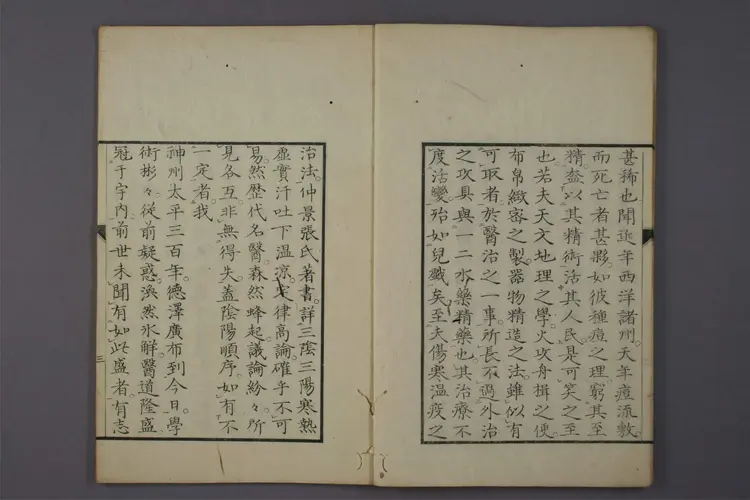 甚稀也聞近年西洋諸州天年痘流敷
而死亡者甚夥如彼種痘之理窮其至
精益以其精術活其人民是可笑之至
也若夫天文地理之學火攻舟楫之便
布帛緻密之製器物精造之法雖似有
可取者於醫治之一事所長不過外治
之攻具與一二水藥精藥也其治療不
度活變殆如兒戲矣至夫傷寒溫疫之
治法仲景張氏著書詳三陰三陽寒熱
虛實汗吐下溫涼定律高論確乎不可
易然歷代名醫森然蜂起議論紛々所
見各互非無得失蓋陰陽順序如有不
一定者我
神州太平三百年德澤廣布到今日學
術彬々從前疑惑渙然氷解醫道隆盛
冠于宇內前世未聞有如此盛者有志
三